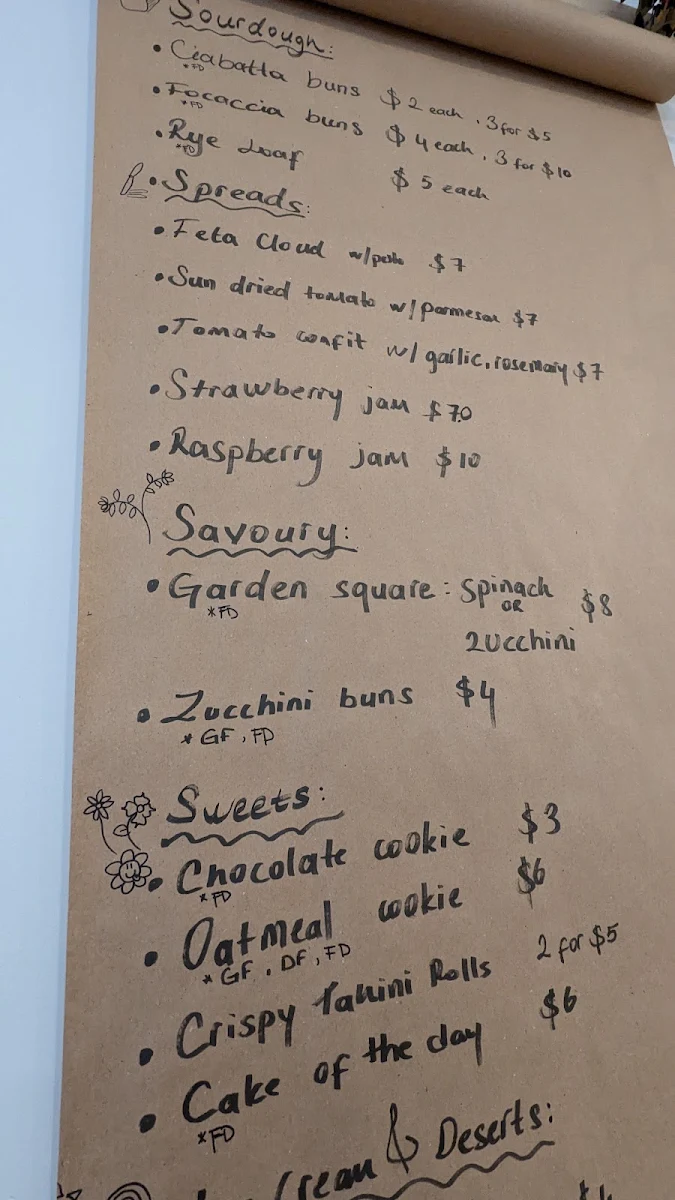 Sourdough:
• Ciabatta buns $2 each, 3 for $5
*FD
• Focaccia buns $4 each, 3 for $10
*FD
• Rye Loaf $5 each
*FD
• Spreads:
• Feta Cloud w/pesto $7
• Sun dried tomato w/parmesan $7
• Tomato confit w/ garlic, rosemary $7
• Strawberry jam $70
• Raspberry jam $10
Savoury:
• Garden square: Spinach $8
*FD OR
Zucchini
• Zucchini buns $4
* GF, FD
Sweets:
• Chocolate cookie $3
*FD
• Oatmeal cookie $6
* GF, DF, FD
• Crispy Tahini Rolls 2 for $5
• Cake of the day $6
*FD
cream & Deserts: